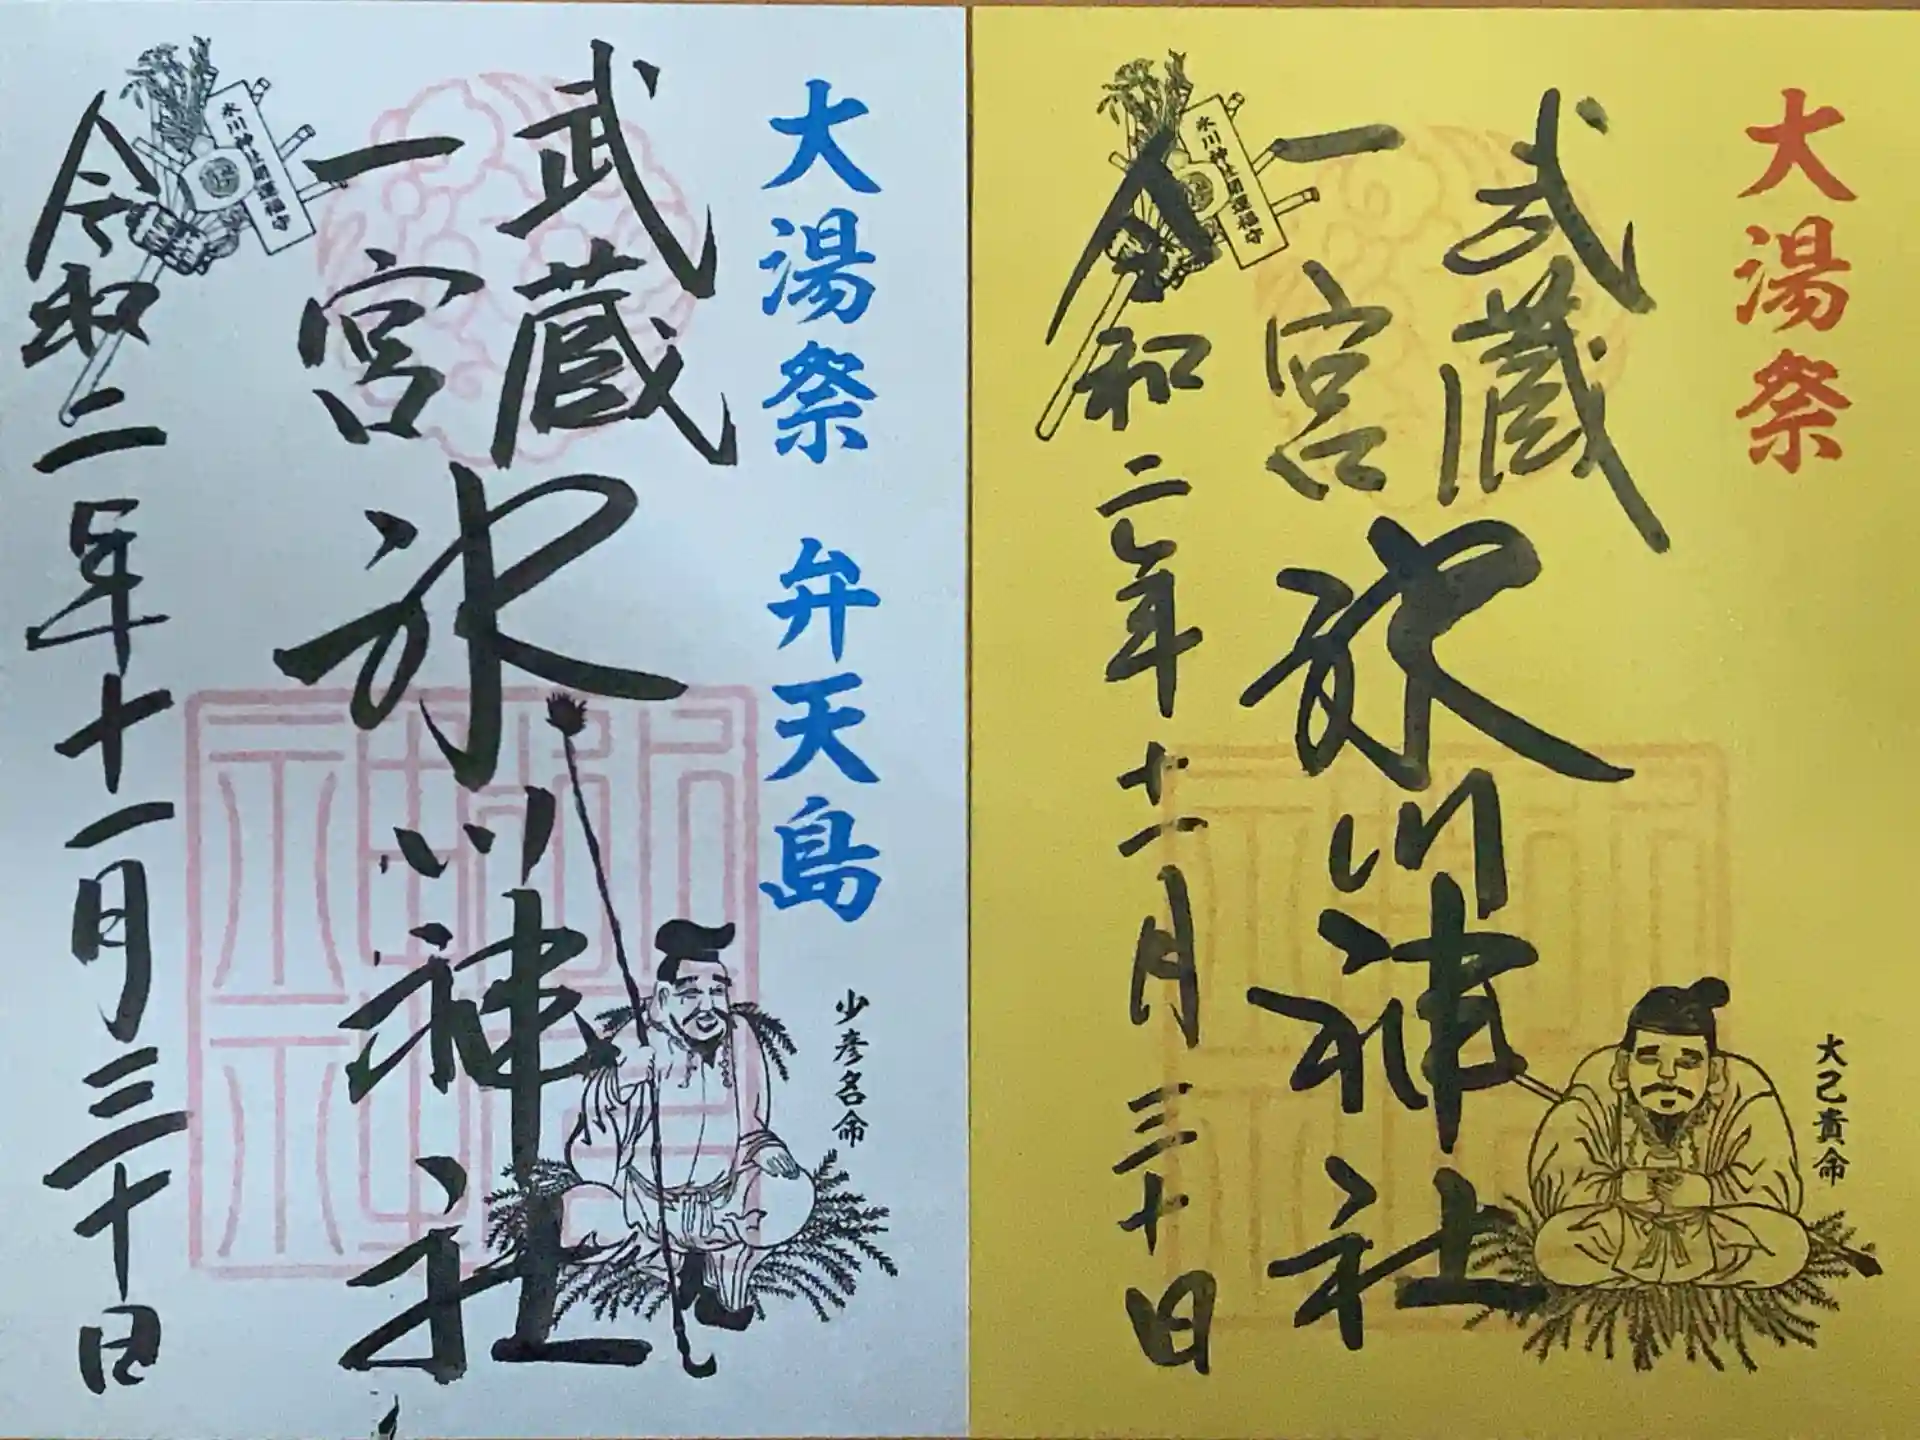 大湯祭
武蔵
一宮
氷川神社
令和二年十一月三十日
氷川神社開運福守
大己貴命
大湯祭 弁天島
武蔵
一宮
氷川神社
令和二年十一月三十日
氷川神社開運福守
少彦名命